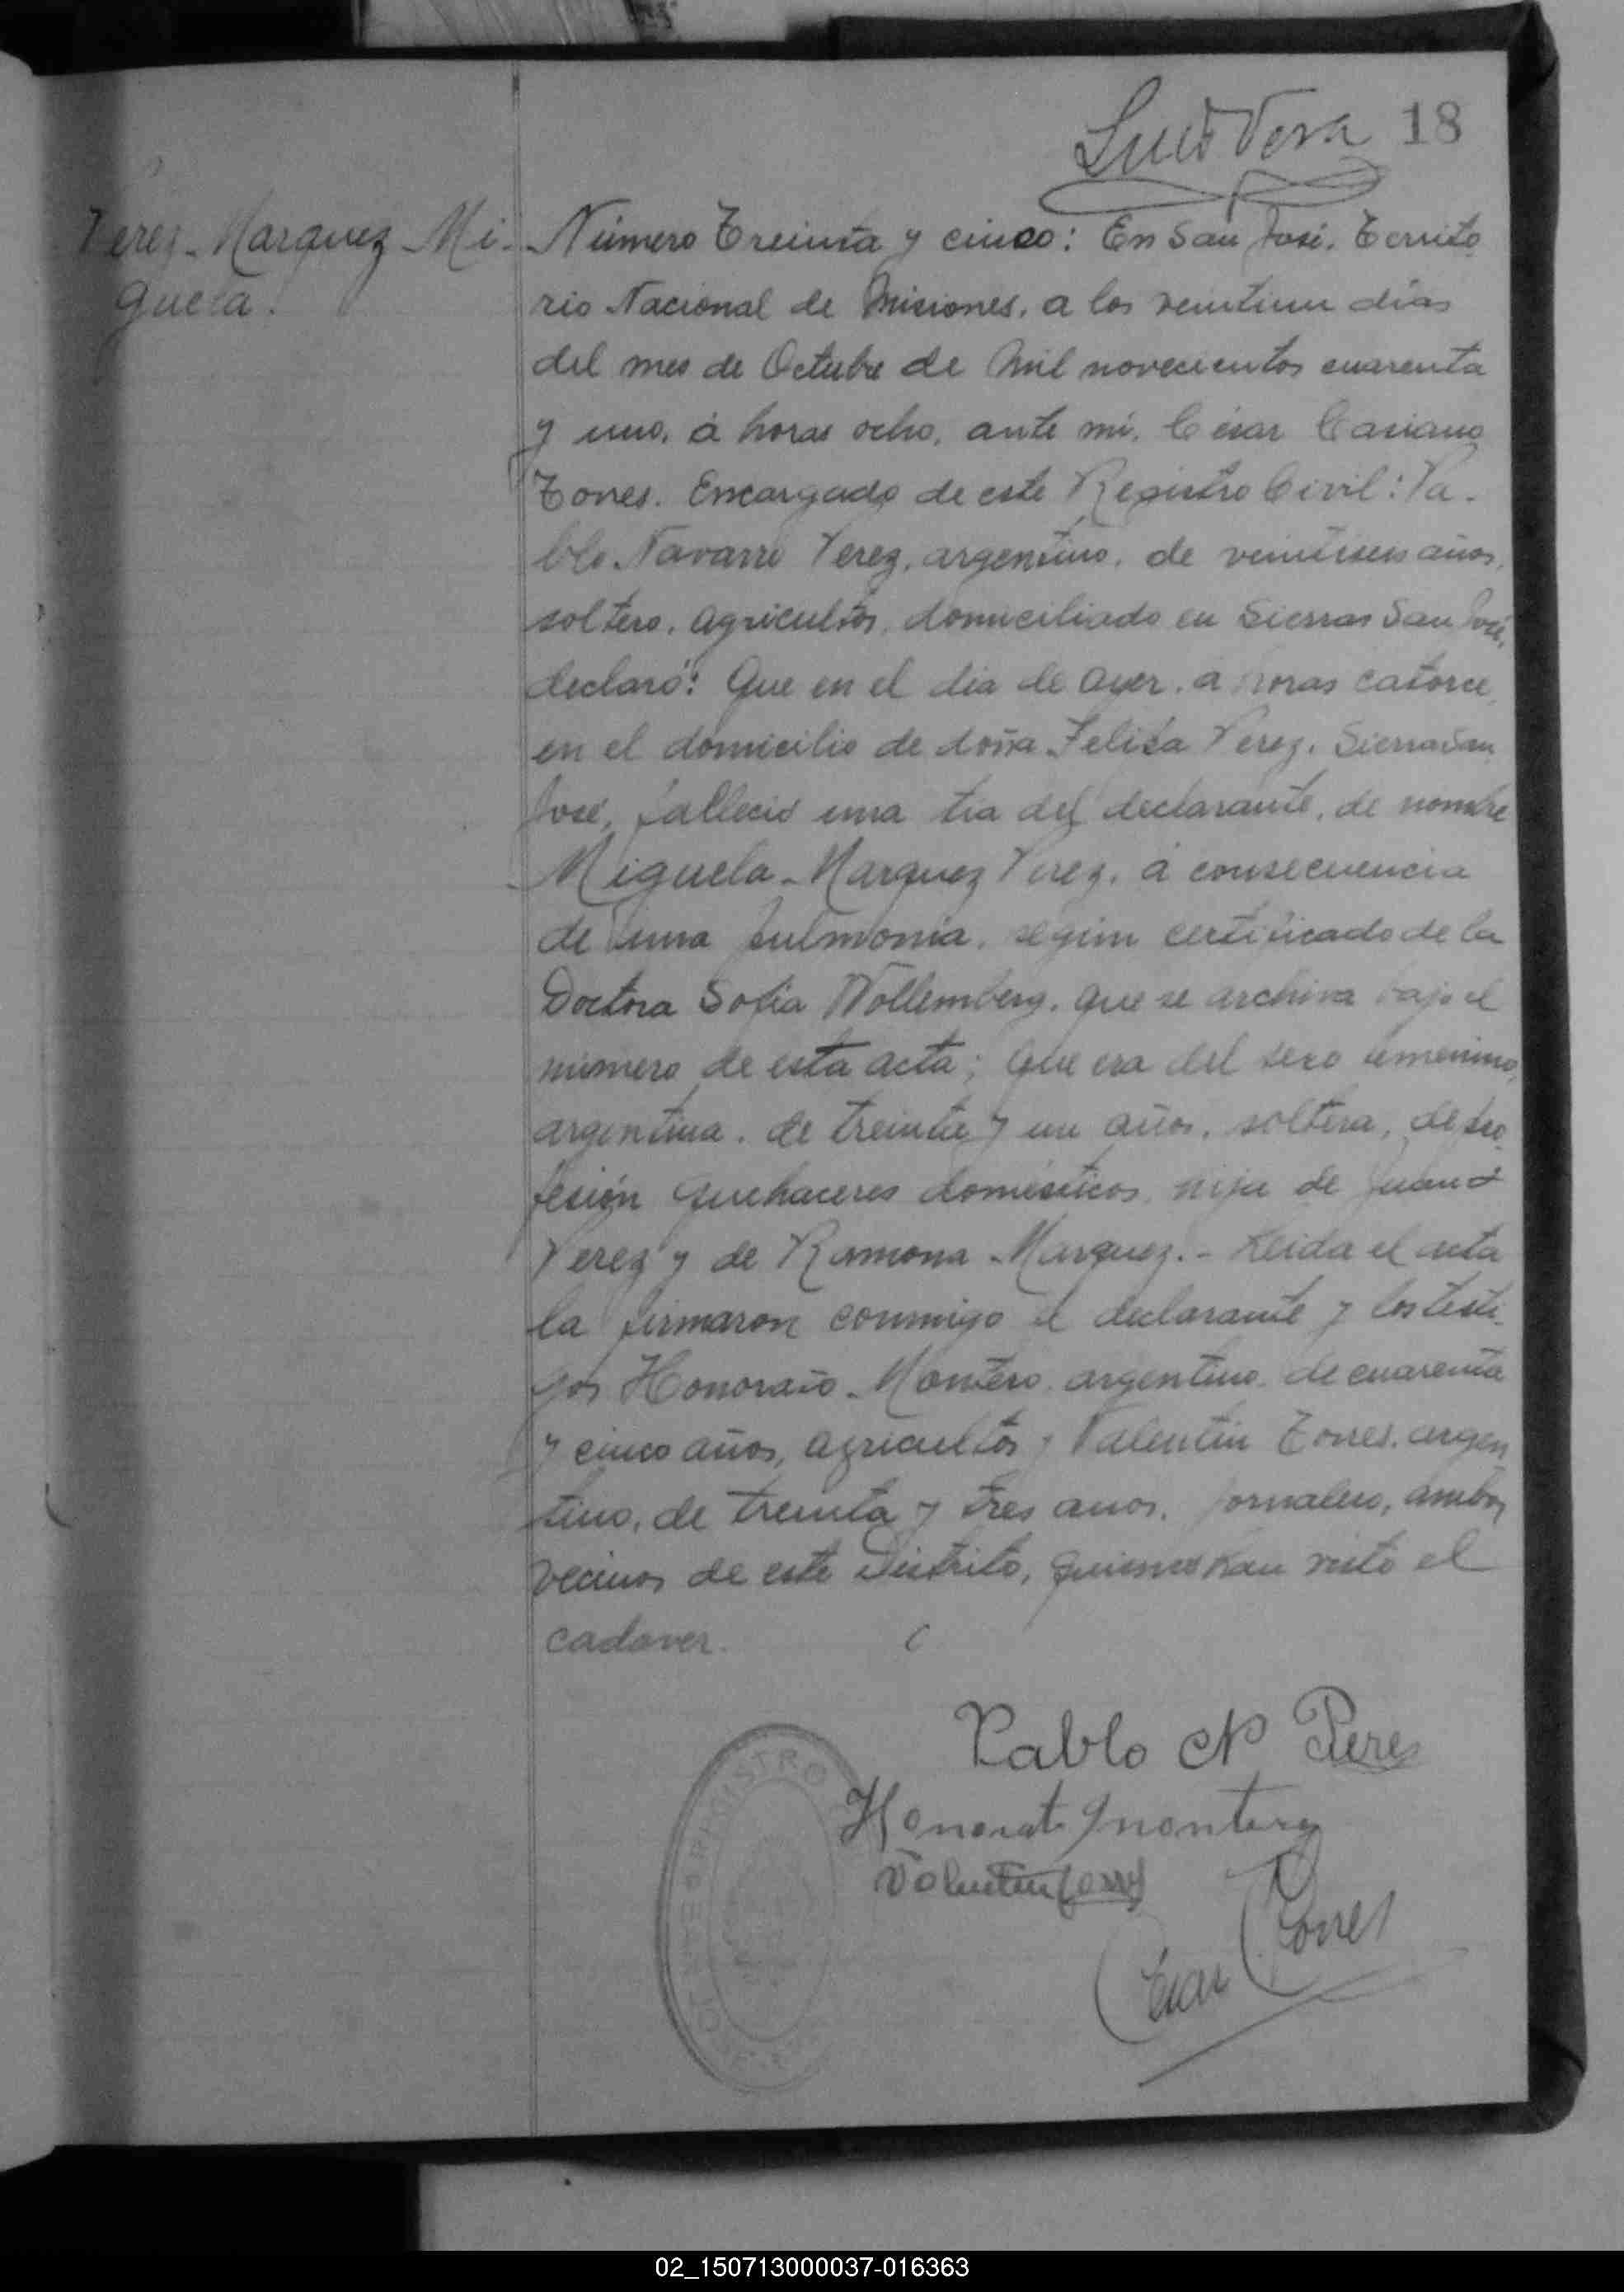 Luis Vera 18
Perez Marquez Mi-
guela.
Número Treinta y cinco: En San José, Territo
rio Nacional de Misiones, a los veintiun dias
del mes de Octubre de Mil novecientos cuarenta
y uno, á horas ocho, ante mí, César Casiano
Torres. Encargado de este Registro Civil: Pa-
blo Navarro Perez, argentino, de veintiseis años,
soltero, agricultor, domiciliado en Sierras San José,
declaró: Que en el dia de ayer, a horas catorce,
en el domicilio de doña Felisa Perez, Sierra San
José, falleció una tia del declarante, de nombre
Miguela Marquez Perez, á consecuencia
de una pulmonia, según certificado de la
Doctora Sofia Wollemberg, que se archiva bajo el
número de esta acta; Que era del sexo femenino,
argentina, de treinta y un años, soltera, de pro
fesión quehaceres domésticos, hija de Juan
Perez y de Ramona Marquez.- Leida el acta
la firmaron conmigo el declarante y los testi-
gos Honorato Montero, argentino, de cuarenta
y cinco años, agricultor y Valentin Torres, argen
tino, de treinta y tres años, jornalero, ambos
vecinos de este Distrito, quienes han visto el
cadaver.
Pablo N Perez
Honorato Montero
Valentin Torres
César C Torres
REGISTRO
02_150713000037-016363